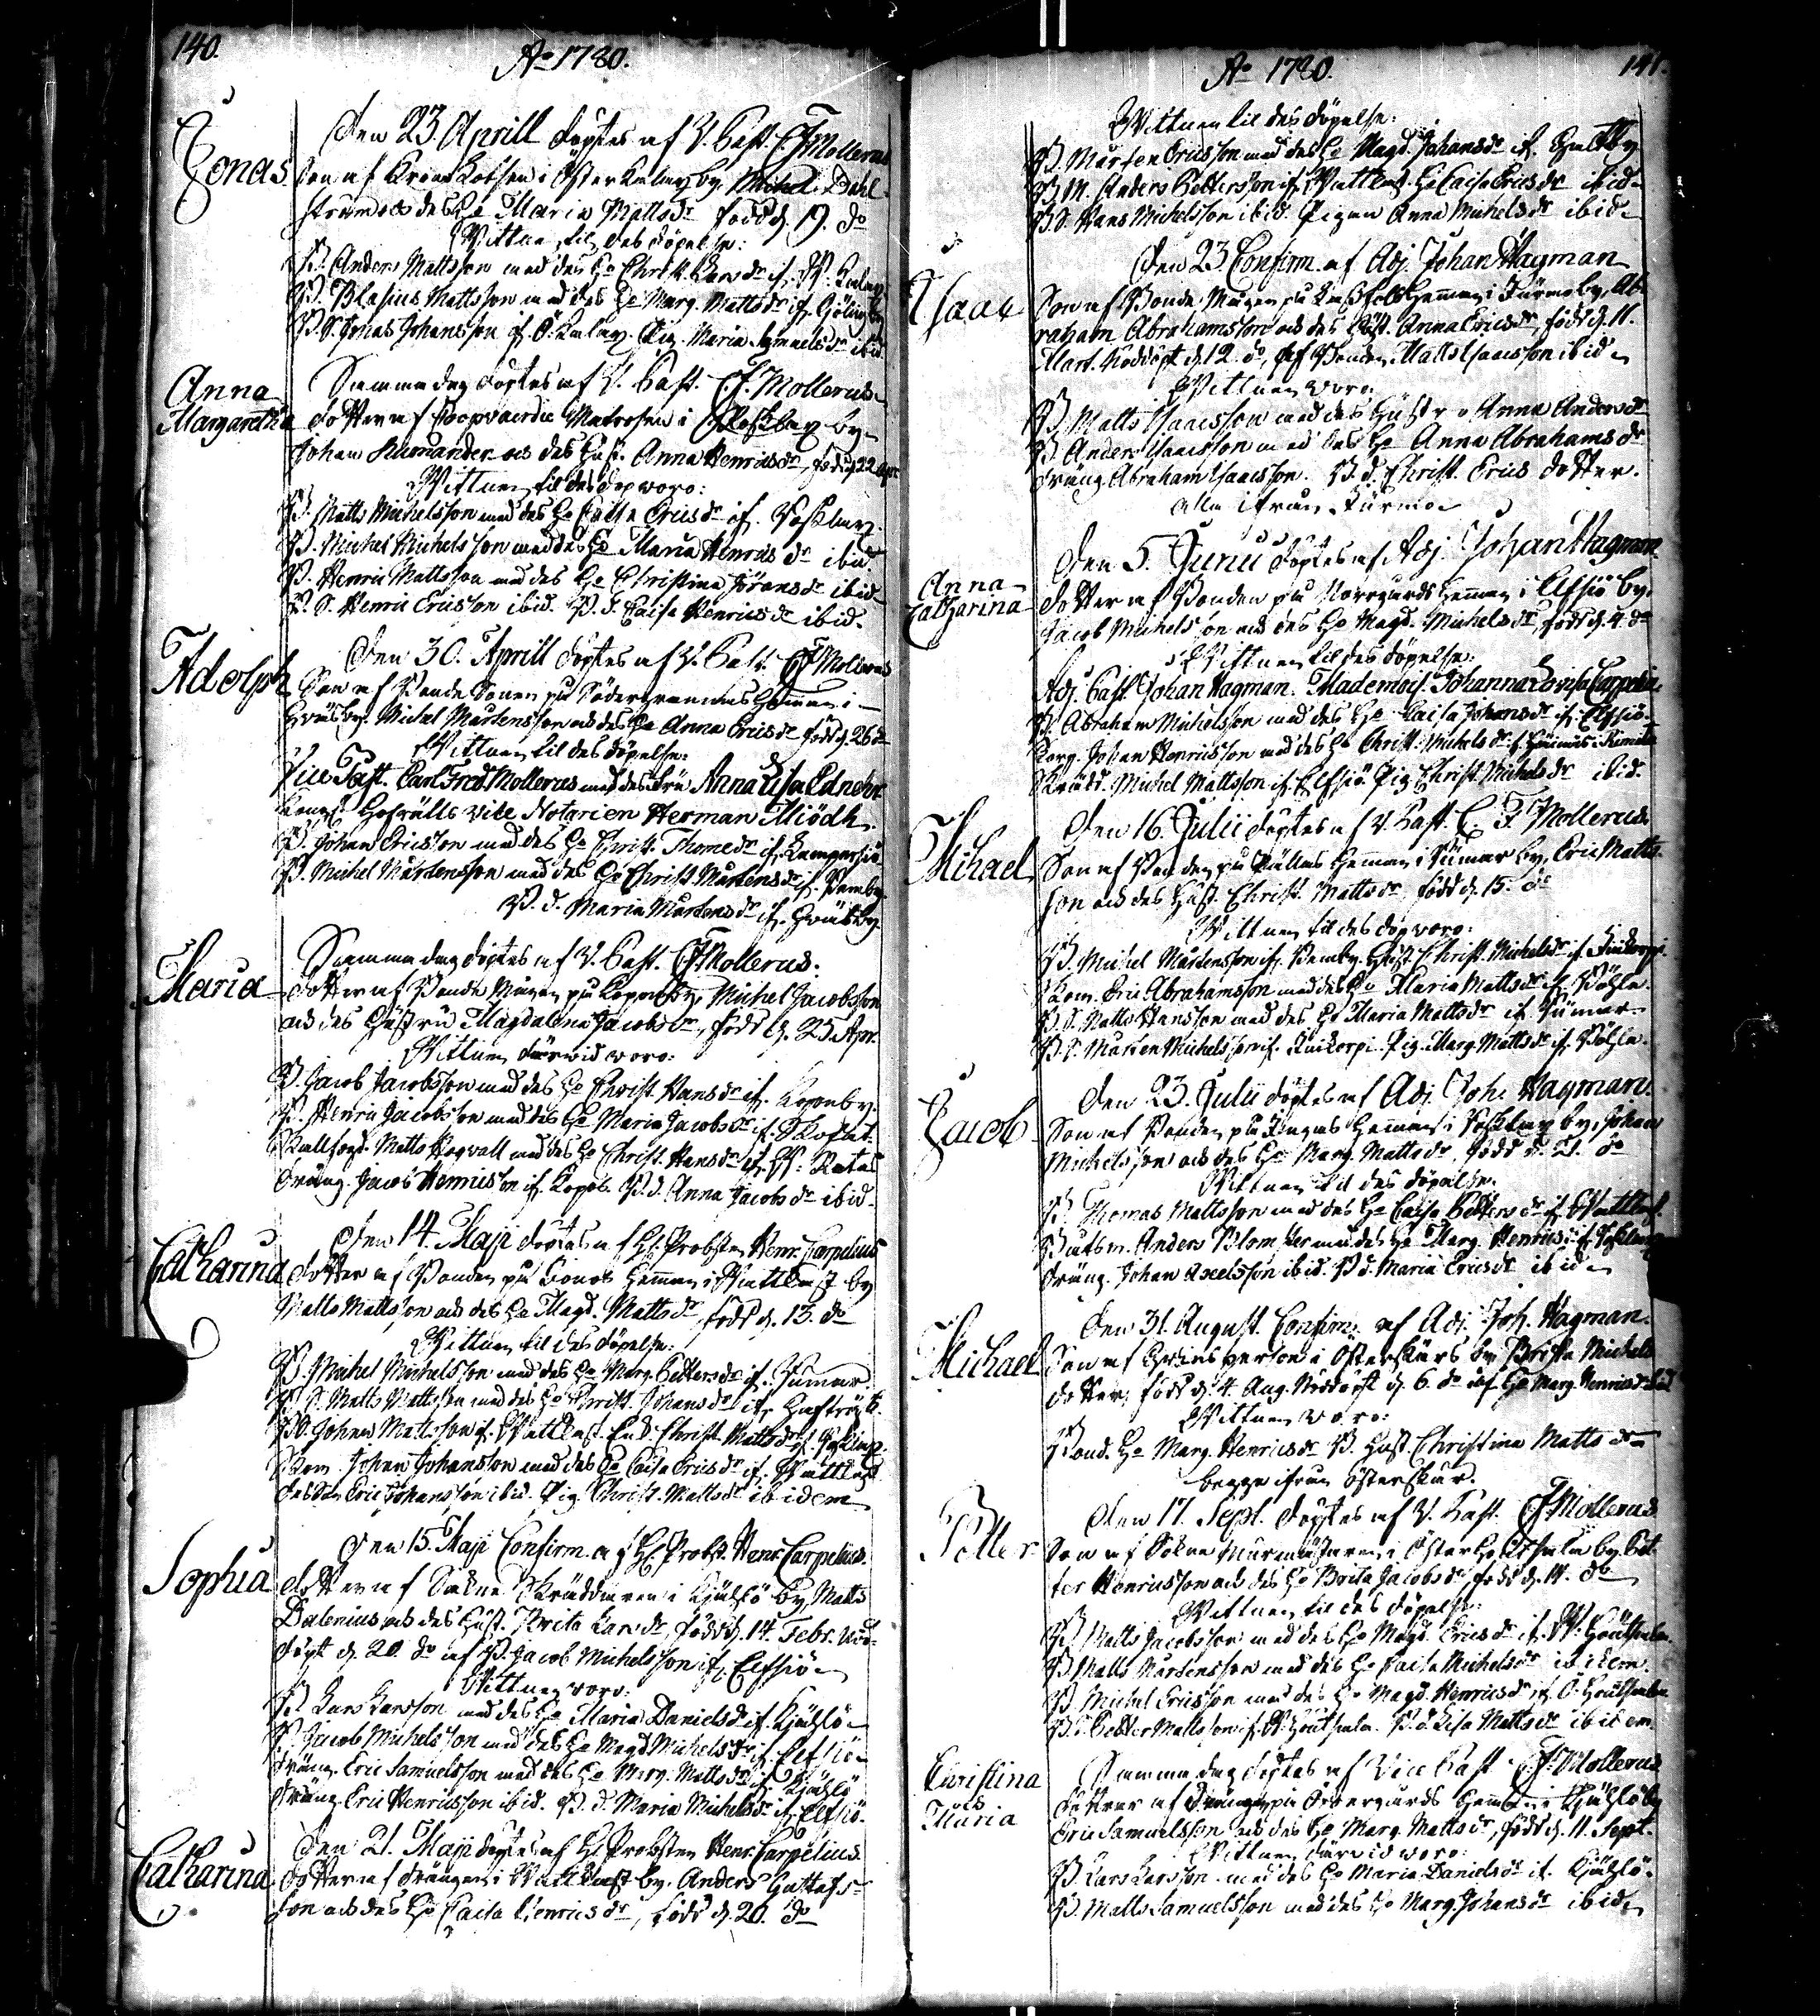 140.
Ao 1780.
Jonas
Den 23 Aprill döptes af V. Past. CF Mollerus
Son af Kronobåtsm. i Österkulay by. Michel Dahl-
ström och des Ho Maria Mattsdr född d. 19. do
Vittne til des döpelse:
B. Anders Mattsson med des Ho Christ. Larsdr if. W. Kulay
B. Blasius Mattsson med des Ho Marg. Mattsdr if.
B. S. Jonas Johansson if. Ö. Kulay. Pig. Maria Samuelsdr ibid.
Anna
Margaretha
Samma dag döptes af V. Past. CF. Mollerus
dotter af Coopvaerdie Matrosen i Pofslax by
Johan Numander och des Hust. Anna Henricsdr, född d. 22 Apr.
Vittnen til des dop voro:
B. Matts Michelsson med des Ho Ericsdr if. Pofslax.
B. Michel Michelsson med des Ho Maria Henricsdr ibid.
B. Henric Mattsson med des Ho Christina Jöransdr ibid.
B. S. Henric Ericsson ibid. B. d. Caisa Henricsdr ibid.
Adolph
Den 30. Aprill döptes af V. Past. CF Mollerus
Son af Bonde Sonen på Södergrannas Hemman i
Gräsby. Michel Mårtensson och des Ho Anna Ericsdr född d. 26 do
Vittnen til des döpelse:
Vice Past. Carl Fred. Mollerus med des Fru Anna Lisa Ednehr
Kongl. Hofrätts Vice Notarien Herman Miödh.
B. Johan Ericsson med des Ho Christ. Thomedr if.
B. Michel Mårtensson med des Ho Christ. Mårtensdr if. Bemby
B. d. Maria Mårtensdr if. Gräsby.
Maria
Samma dag döptes af V. Past. CF Mollerus.
dotter af Bonde Mågen på Kopparby Michel Jacobsson
och des Hustru Magdalena Jacobsdr, född d. 25 Apr.
Vittnen härvid voro:
B. Jacob Jacobsson med des Ho Christ. Hansdr if.
B. Henric Jacobsson med des Ho Maria Jacobsdr if.
Matts Hagwall med des Ho Christ. Hansdr if.
Dräng. Jacob Henricsson if. B. d. Anna Jacobsdr ibid.
Catharina
Den 14. Maji döptes af H. Probsten Henr. Carpelius
dotter af Bonden på Hemman i Wattkast by
Matts Mattsson och des Ho Magd. Mattsdr född d. 13. do
Vittnen til des döpelse:
B. Michel Michelsson med des Ho Marg. Pettersdr if. Simar
B. S. Matts Mattsson med des Ho Christ. Johansdr if.
B. S. Johan Mattsson if. Wattkast. Christ. Mattsdr if. Pofslax
Skom. Johan Johansson med des Ho Caisa Ericsdr if. Wattkast
Eric Johansson ibid. Pig. Christ. Mattsdr ibidem
Sophia
Den 15. Maji Confirm. af H. Probst. Henr. Carpelius.
dotter af Sockne Skräddaren i Kjuslö by Matts
Dalenius och des Hust. Brita Larsdr, född d. 14. Febr. Nöd-
döpt d. 20. do af B. Jacob Michelsson if. Elfsiö
Vittnen voro:
B. Lars Larsson med des Ho Maria Danielsdr if. Kjuslö
B. Jacob Michelsson med des Ho Magd. Michelsdr if. Elfsiö
Dräng. Eric Samuelsson med des Ho Marg. Mattsdr if. Kjuslö
Dräng. Eric Henricsson ibid. B. d. Maria Michelsdr if. Elfsiö.
Catharina
Den 21. Maji döptes af H. Probsten Henr. Carpelius
dotter af Drängen i Wattkast by. Anders Gustafs-
son och des Ho Caisa Henricsdr, född d. 20. do
141.
Ao 1780.
Vittnen til des döpelse:
B. Mårten Ericsson med des Ho Magd. Johansdr if.
B. M. Anders Pettersson if. Wattkast. Ho Caisa Ericsdr ibid.
B. S. Hans Michelsson ibid. Pigan Anna Michelsdr ibid.
Isaac
Den 23 Confirm. af Adj. Johan Hagman
Son af Bonde Mågen på Hemman i Järmo by, Ab-
raham Abrahamsson och des Hust. Anna Ericsdr, född d. 11.
Mart. Nöddöpt d. 12. do, af Bonden Matts Isaacsson ibid.
Vittnen voro:
B. Matts Isaacsson med des Hustru Anna Andersdr
B. Anders Isaacsson med des Ho Anna Abrahamsdr
Dräng Abraham Isaacsson. B. d. Christ. Erics dotter.
alla ifrån Järmo
Anna
Catharina
Den 5. Junii döptes af Adj. Johan Hagman
dotter af Bonden på Norrgårds Hemman i Elfsiö by.
Jacob Michelsson och des Ho Magd. Michelsdr, född d. 4. do
Vittnen til des döpelse:
Adj. Past. Johan Hagman. Mademois. Johanna Lovisa Carpelia.
B. Abraham Michelsson med des Ho Caisa Johansdr if. Elfsiö
Johan Henricsson med des Ho Christ. Michelsdr if. Kimito
Skrädd. Michel Mattsson if. Elfsiö. Pig. Christ. Michelsdr ibid.
Michael
Den 16. Julii döptes af V. Past. C. F. Mollerus.
Son af Bonden på Hemman i Simar by, Eric Matts-
son och des Hust. Christ. Mattsdr, född d. 15. do
Vittnen til des dop voro:
B. Michel Mårtensson if. Bemby. Hust. Christ. Michelsdr if. Finkorpi.
Eric Abrahamsson med des Ho Maria Mattsdr if.
B. S. Matts Hansson med des Ho Maria Mattsdr if. Simar
B. S. Mårten Michelsson if. Finkorpi. Pig. Marg. Mattsdr if.
Jacob
Den 23. Julii döptes af Adj. Joh. Hagman.
Son af Bonden på Hemman i Pofslax by, Johan
Michelsson och des Ho Marg. Mattsdr, född d. 21. do
Vittnen til des döpelse.
B. Thomas Mattsson med des Ho Caisa Pettersdr if. Wattkast.
Båtsm. Anders Blomster med des Ho Marg. Henricsdr if. Pofslax
Dräng. Johan Axelsson ibid. B. d. Maria Ericsdr ibid.
Michael
Den 31. August. Confirm. af Adj. Joh. Hagman.
Son af Qvinsperson i Österskärs by Brita Michels
dotter, född d. 4. Aug. Nöddöpt d. 6. do af Ho Marg. Henricsdr ibid
Vittnen voro:
Bond. Ho Marg. Henricsdr B. Hust. Christina Mattsdr
begge ifrån Österskär.
Petter
Den 17. Sept. döptes af V. Past. CF Mollerus
Son af Sokne Murmästaren i Öster by. Pet-
ter Henricsson och des Ho Brita Jacobsdr, född d. 14. do
Vittnen til des döpelse:
B. Matts Jacobsson med des Ho Magd. Ericsdr if. W.
B. Matts Mårtensson med des Ho Caisa Michelsdr ibidem.
B. Michel Ericsson med des Ho Magd. Henricsdr if. Ö.
B. S. Petter Mattsson if. W. B. d. Lisa Mattsdr ibidem.
Christina
och
Maria
Samma dag döptes af Vice Past. C. F. Mollerus
döttrar af Drängen på Södergårds Hemman i Kjuslö by
Eric Samuelsson och des Ho Marg. Mattsdr, född d. 11. Sept.
Vittnen härvid voro:
B. Lars Larsson med des Ho Maria Danielsdr if. Kjuslö.
B. Matts Samuelsson med des Ho Marg. Johansdr ibid.